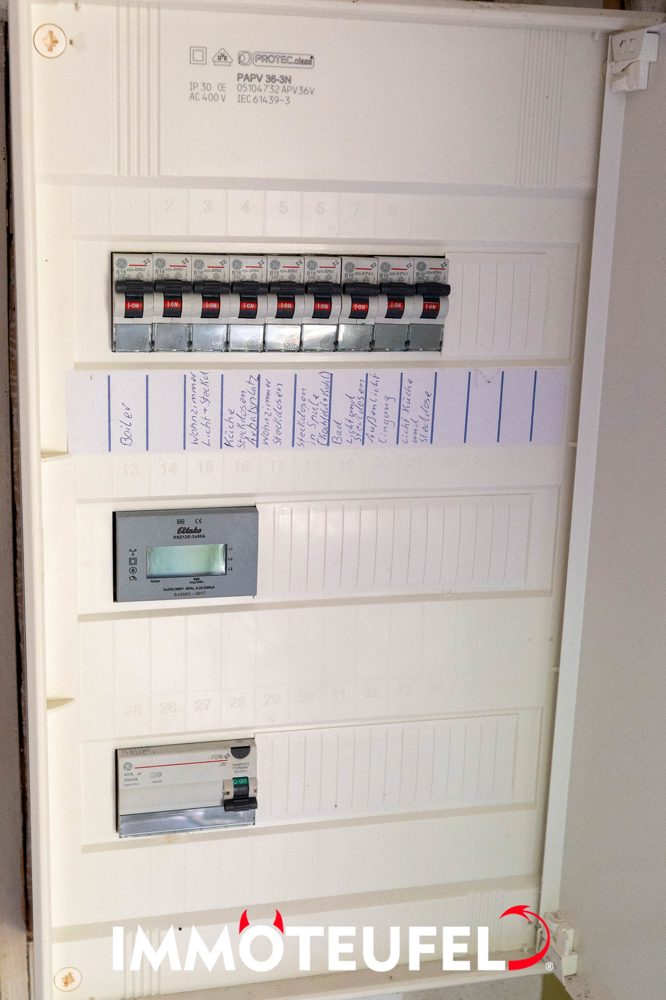 PROTEC.class
PAPV 36-3N
IP 30 CE 05104732 APV36V
AC 400 V IEC 61439-3
1 2 3 4 5 6 7 8
I-ON I-ON I-ON I-ON I-ON I-ON I-ON I-ON I-ON
Boiler
Wohnzimmer
Licht + Steckd
Küche
Steckdosen
Arbeitsplatz
Wohnzimmer
Steckdosen
Steckdosen
in Spüle
Bad
Licht und
Steckdosen
Außenlicht
Eingang
Licht Küche
und
Steckdose
13 14 15 16 17 18 19
Eltako
DSZ12E-3x80A
25 26 27 28 29 30 31 32 33 34
GE
40A
30mA
IMMOTEUFEL®